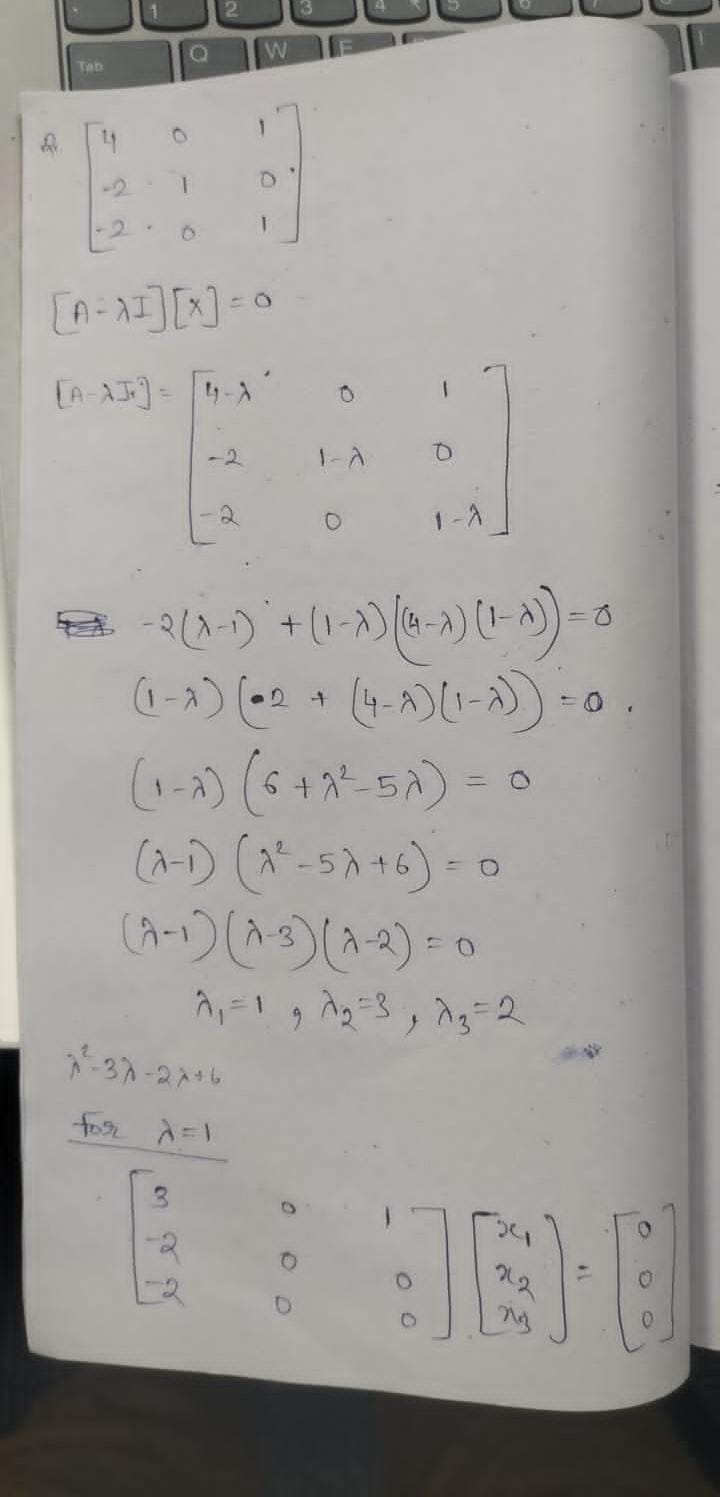 1 2 3 4 5 6
Tab Q W E
2. [4 0 1
-2 1 0
-2 0 1]
[A-λI][X]=0
[A-λI]= [4-λ 0 1
-2 1-λ 0
-2 0 1-λ]
-2(λ-1) +(1-λ)((4-λ)(1-λ))=0
(1-λ)(2 + (4-λ)(1-λ))=0.
(1-λ)(6+λ²-5λ) = 0
(λ-1)(λ²-5λ+6)=0
(λ-1)(λ-3)(λ-2)=0
λ₁=1, λ₂=3, λ₃=2
λ²-3λ-2λ+6
for λ=1
[3 0 1] [x₁] = [0]
[-2 0 0] [x₂] [0]
[-2 0 0] [x₃] [0]